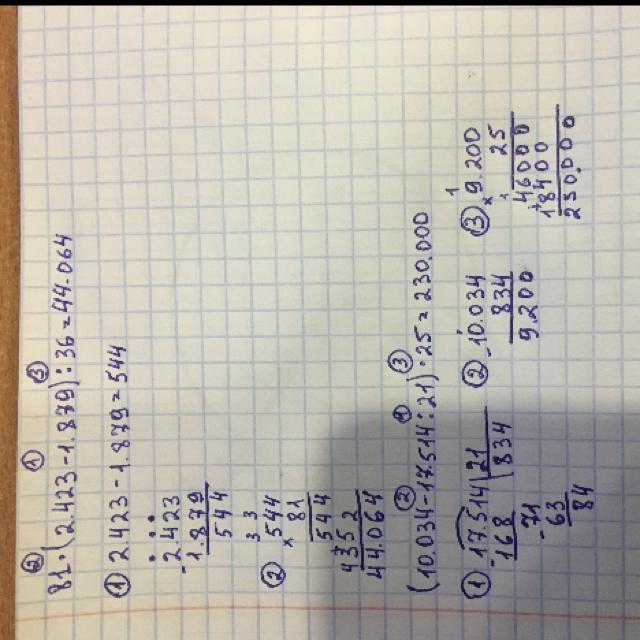 ② ① ③
81·(2423-1.879):36=44.064
① 2423-1.879=544
-2423
1.879
544
3 3
② × 544
81
544
4352
44.064
② ① ③
(10.034-17.514:21)·25=230.000
① 17.514 | 21
-168 834
71
-63
84
② -10.034
834
9.200
1
③ × 9.200
25
46000
18400
230.000